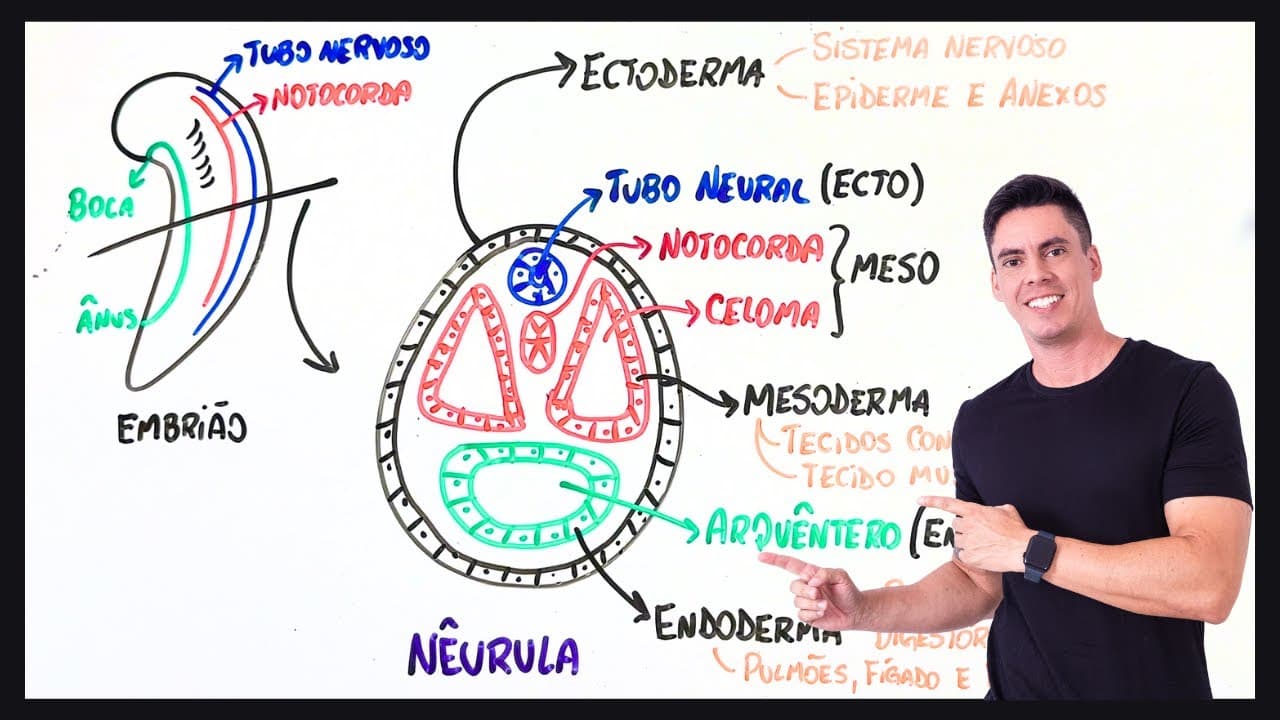 TUBO NERVOSO
NOTOCORDA
BOCA
ÂNUS
EMBRIÃO
ECTODERMA
SISTEMA NERVOSO
EPIDERME E ANEXOS
TUBO NEURAL (ECTO)
NOTOCORDA
CELOMA
MESO
MESODERMA
TECIDOS
TECIDO
ARQUÊNTERO
ENDODERMA
PULMÕES, FÍGADO E
NÊURULA